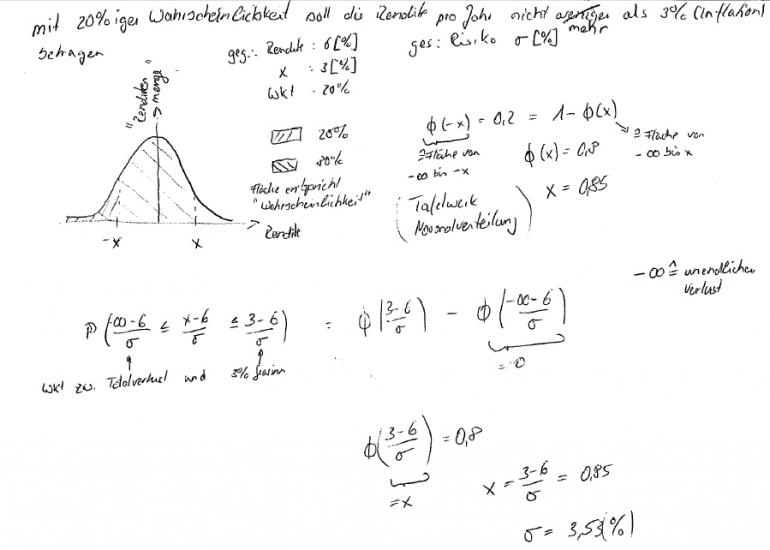 mit 20%iger Wahrscheinlichkeit soll die Rendite pro Jahr nicht weniger als 3% (Inflation)
mehr
betragen
geg.: Rendite : 6[%]
ges: Risiko σ[%]
x : 3[%]
Wkt : 20%
"Renditen"
menge
20%
80%
Fläche entspricht
"Wahrscheinlichkeit"
-x
x
Rendite
ϕ(-x) = 0,2 = 1 - ϕ(x)
≙ Fläche von
-∞ bis -x
≙ Fläche von
-∞ bis x
ϕ(x) = 0,8
x = 0,85
(Tafelwerk
Normalverteilung)
-∞ ≙ unendlicher
Verlust
P(-∞-6/σ ≤ x-6/σ ≤ 3-6/σ) = ϕ(3-6/σ) - ϕ(-∞-6/σ)
= 0
Wkt zw. Totalverlust und 3%
ϕ(3-6/σ) = 0,8
= x
x = 3-6/σ = 0,85
σ = 3,53(%)